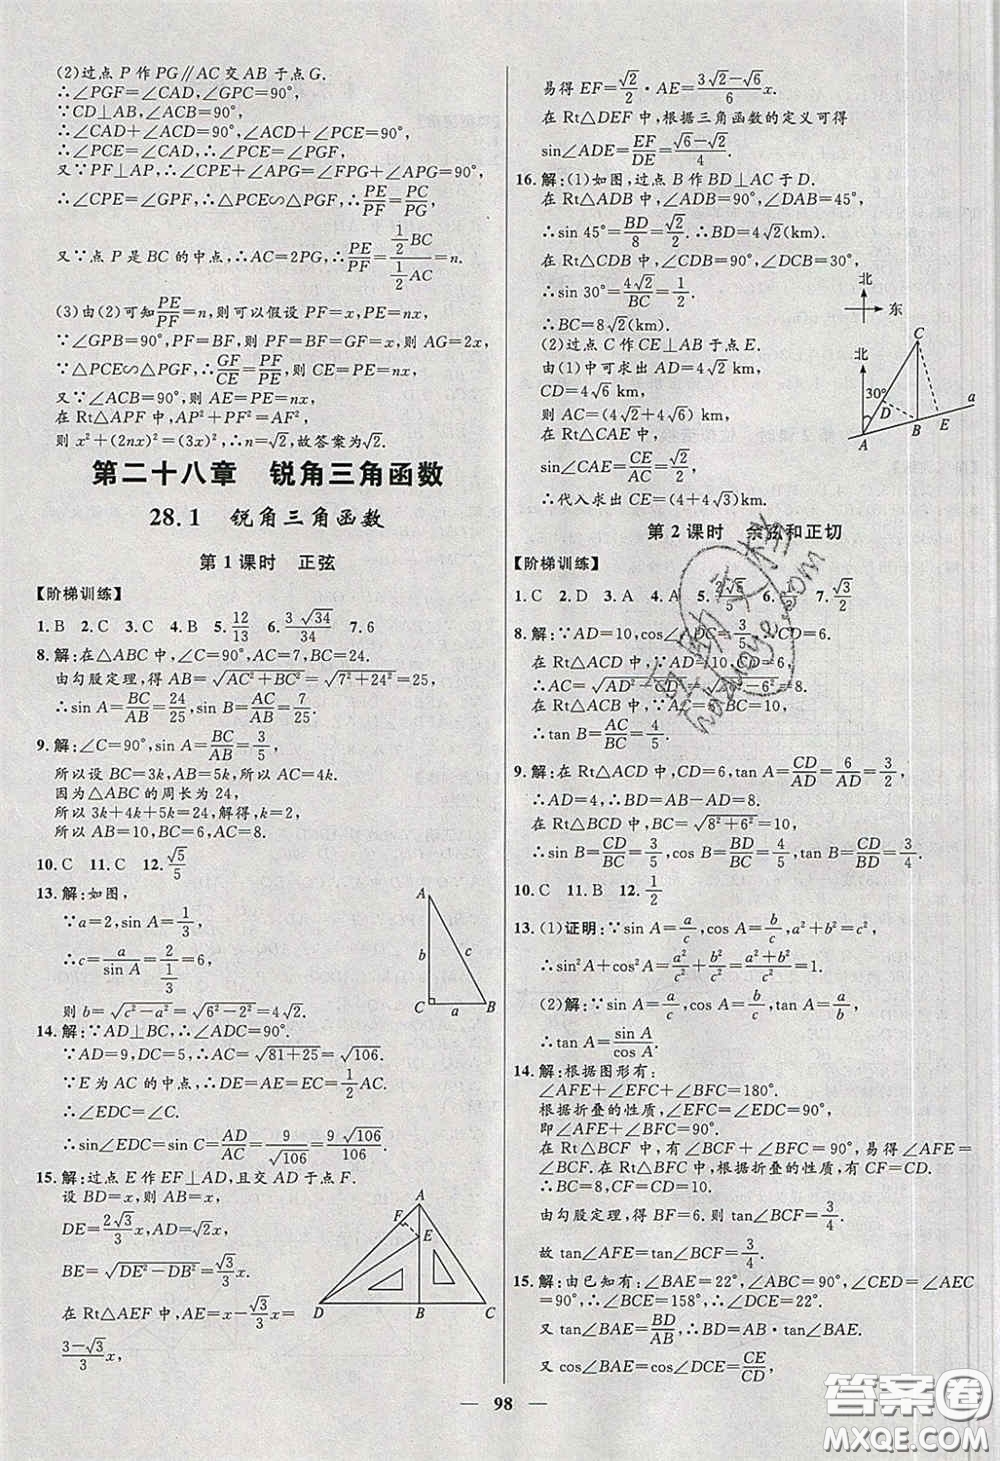 (2)过点 P 作 PG∥AC 交 AB 于点 G.
∴∠PGF=∠CAD,∠GPC=90°.
∵CD⊥AB,∴∠CAP=90°,
∴∠PCE+∠CAD=∠CAD+∠PCE=90°.
∴∠PCE=∠CAD,∴∠PCE=∠PGF,
又∵PF⊥AP,∴∠CPE+∠APG=∠FPG+∠APG=90°,
∴∠CPE=∠GPF,∴△PCE∽△PGF,∴PE/PF=PC/PG,
又∵点 P 是 BC 的中点,∴AC=2PG,∴PE/PF=(1/2 BC)/(1/2 AC)=n.
(3)由(2)可知PE/PF=n,则可以假设 PF=x,PE=nx,
∵∠GPB=90°,PF=BF,则 PF=BF=GF=x,则 AG=2x,
∵△PCE∽△PGF,∴GF/CE=PF/PE=1/n,∴CE=nx,
∵∠CAB=90°,∴AE=PE=nx,
在 Rt△APF 中,AP²+PF²=AF²,
则 x²+(2nx)²=(3x)²,∴n=√2,故答案为√2.
第二十八章 锐角三角函数
28.1 锐角三角函数
第 1 课时 正弦
【阶梯训练】
1.B 2.C 3.C 4.B 5.12/13 6.3√34/34 7.6
8.解:在△ABC 中,∠C=90°,AC=7,BC=24.
由勾股定理,得 AB=√(AC²+BC²)=√(7²+24²)=25,
∴sin A=BC/AB=24/25,sin B=AC/AB=7/25.
9.解:∠C=90°,sin A=BC/AB=3/5,
所以设 BC=3k,AB=5k,AC=4k.
因为△ABC 的周长为 24,
所以 3k+4k+5k=24,解得,k=2.
所以 AB=10,BC=6,AC=8.
10.C 11.C 12.√5/5
13.解:如图,
∵a=2,sin A=1/3,
∴c=a/sin A=2/(1/3)=6,
则 b=√(c²−a²)=√(6²−2²)=4√2.
A
b
c
C
a
B
14.解:∵AD⊥BC,∴∠ADC=90°.
∵AD=9,DC=5,∴AC=√(81+25)=√106.
∵E 为 AC 的中点,∴DE=AE=EC=1/2 AC,
∴∠EDC=∠C.
∴sin∠EDC=sin C=AD/AC=9/√106=9√106/106.
15.解:过点 E 作 EF⊥AD,且交 AD 于点 F.
设 BD=x,则 AB=x,
DE=2√3/3 x,AD=√2x,
BE=√(DE²−DB²)=√3/3 x,
在 Rt△AEF 中,AE=x−√3/3 x=
(3−√3)/3 x,
A
F
E
D
B
C
易得 EF=√2/2·AE=(3√2−√6)/6 x.
在 Rt△DEF 中,根据三角函数的定义可得
sin∠ADE=EF/DE=(√6−√2)/4.
16.解:(1)如图,过点 B 作 BD⊥AC 于 D.
在 Rt△ADB 中,∠ADB=90°,∠DAB=45°,
∴sin 45°=BD/8=√2/2.∴BD=4√2(km).
在 Rt△CDB 中,∠CDB=90°,∠BCD=30°,
∴sin 30°=4√2/BC=1/2.
∴BC=8√2(km).
(2)过点 C 作 CE⊥AB 于点 E.
由(1)中可求出 AD=4√2 km,
CD=4√6 km,
则 AC=(4√2+4√6) km.
在 Rt△CAE 中,
sin∠CAE=CE/AC=√2/2,
∴代入求出 CE=(4+4√3)km.
北
东
北
C
30°
D
a
A
B
E
第 2 课时 余弦和正切
【阶梯训练】
1.C 2.D 3.A 4.A 5.2√5/5 6.12/5 7.√3/2
8.解:∵AD=10,cos∠ADC=3/5,∴CD=6.
在 Rt△ACD 中,∵AD=10,CD=6,
∴AC=√(AD²−CD²)=√(10²−6²)=8.
在 Rt△ACB 中,∵AC=8,BC=10+6=16,
∴tan B=AC/BC=8/16=1/2.
9.解:在 Rt△ACD 中,CD=6,tan A=CD/AD=6/AD=3/2,
∴AD=4.∴BD=AB−AD=12−4=8.
在 Rt△BCD 中,BC=√(8²+6²)=10,
∴sin B=CD/BC=3/5,cos B=BD/BC=4/5,tan B=CD/BD=3/4.
10.C 11.B 12.1/2
13.(1)证明:∵sin A=a/c,cos A=b/c,a²+b²=c²,
∴sin²A+cos²A=a²/c²+b²/c²=(a²+b²)/c²=c²/c²=1.
(2)解:∵sin A=a/c,cos A=b/c,tan A=a/b,
∴tan A=sin A/cos A.
14.解:根据图形有:
∠AFE+∠EFC+∠BFC=180°.
根据折叠的性质,∠EFC=∠EDC=90°,
即∠AFE+∠BFC=90°.
在 Rt△BCF 中,有∠BCF+∠BFC=90°,易得∠AFE=∠BCF,
在 Rt△BFC 中,根据折叠的性质,有 CF=CD.
∴CF=8.
由勾股定理,得 BF=6.则 tan∠BCF=3/4.
故 tan∠AFE=tan∠BCF=3/4.
15.解:由已知有:∠BAE=22°,∠ABC=90°,∠CED=∠AEC
=90°,∴∠BCE=158°,∴∠DCE=22°.
又 tan∠BAE=BD/AB,∴BD=AB·tan∠BAE.
又 cos∠BAE=cos∠DCE=CE/CD,
98
答案卷
MXQE.COM